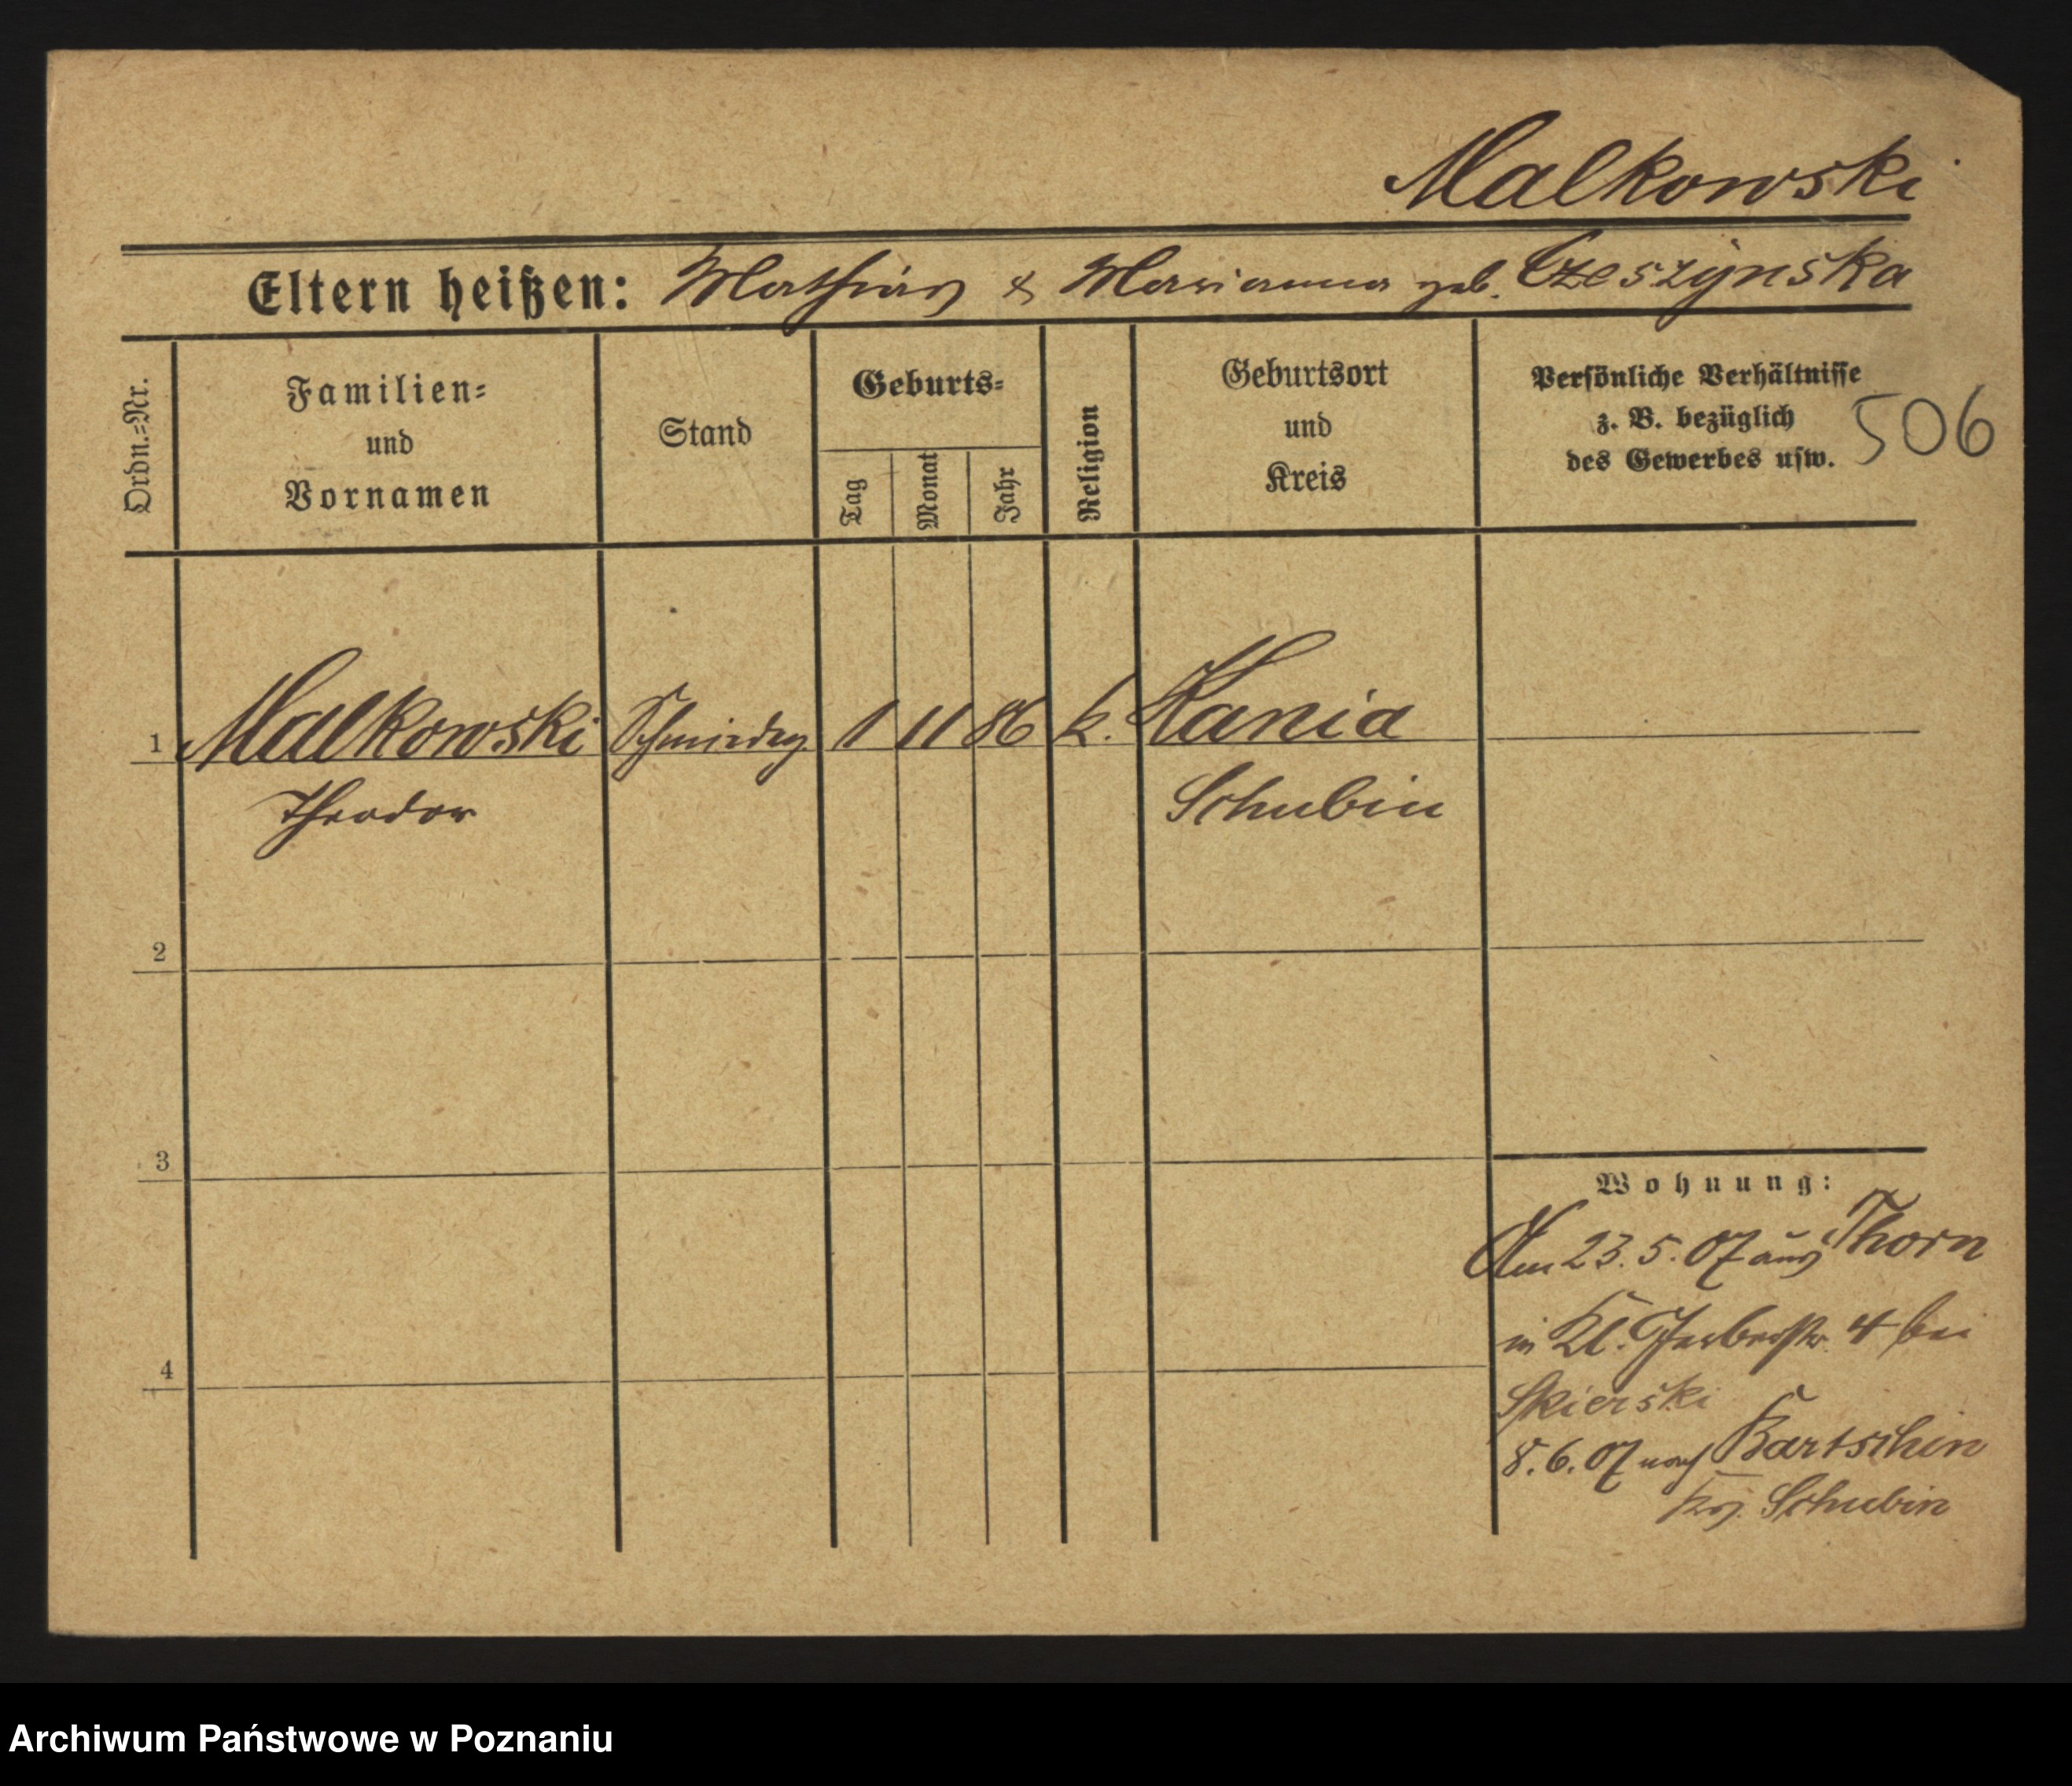 Malkowski
Eltern heißen: Mathias & Marianna geb. Czeszynska
Ordn.=Nr.
Familien=
und
Vornamen
Stand
Geburts=
Tag
Monat
Jahr
Religion
Geburtsort
und
Kreis
Persönliche Verhältnisse
z. B. bezüglich
des Gewerbes usw.
506
1 Malkowski Schmiedeg. 1 11 86 k. Kania
Theodor Schubin
2
3
4
Wohnung:
Am 23.5.07 aus Thorn
in Kl. Gerberstr. 4 bei
Skierski
8.6.07 nach Bartschin
Krs. Schubin
Archiwum Państwowe w Poznaniu